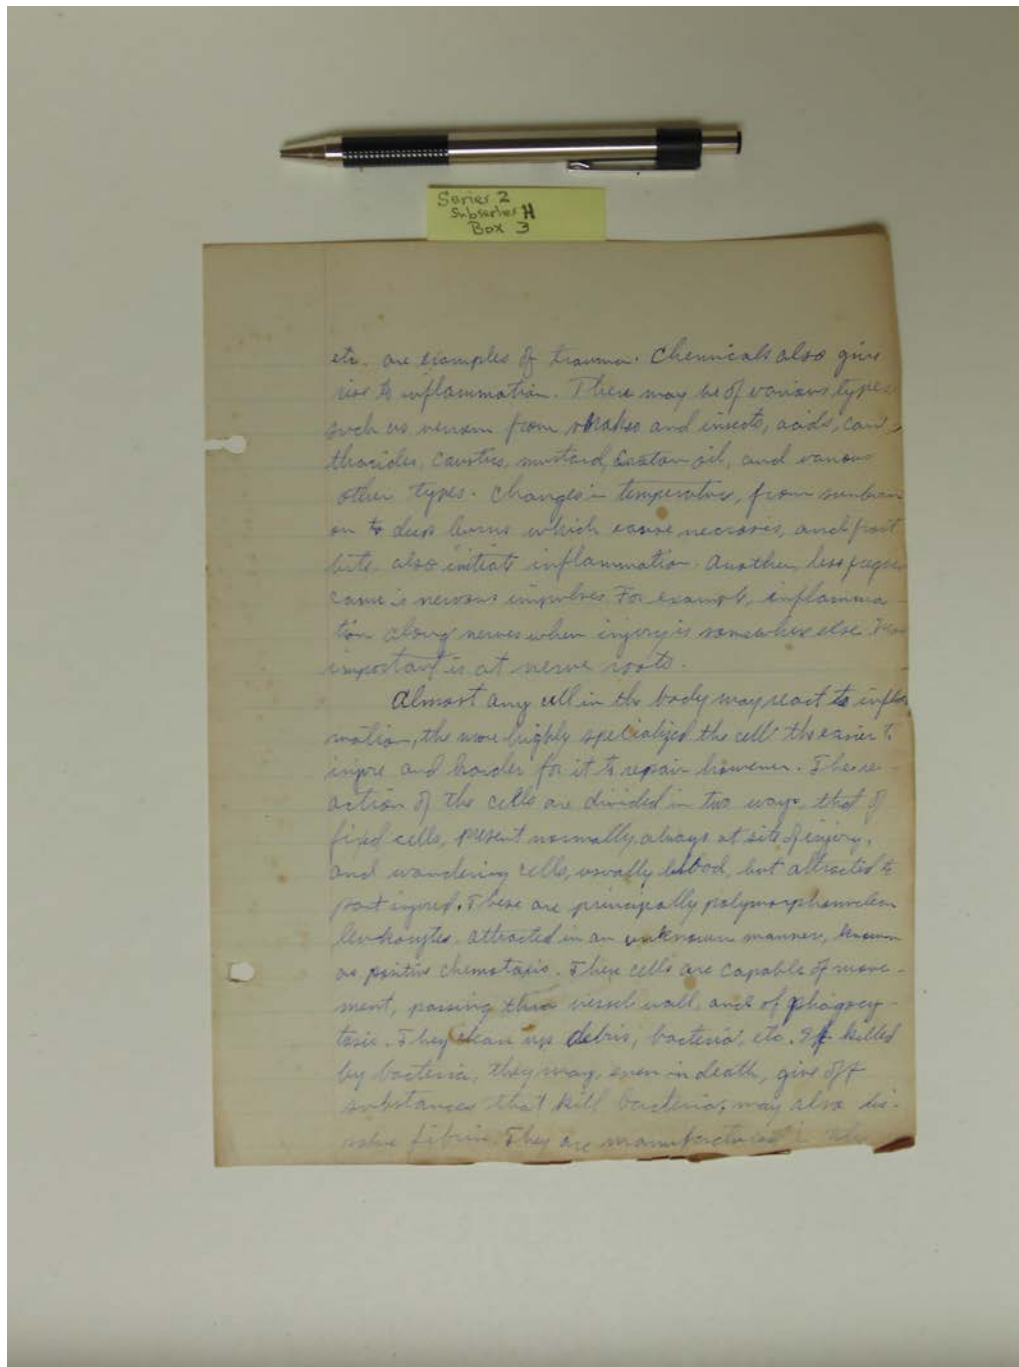 Series 2
Subseries H
Box 3
etc. are examples of trauma. Chemicals also give
rise to inflammation. These may be of various types
such as venom from snakes and insects, acids, can
tharides, caustics, mustard, croton oil, and various
other types. Changes in temperature, from sunburn
on to deep burns which cause necrosis, and frost
bite, also initiate inflammation. Another, less frequen
cause is nervous impulses. For example, inflamma-
tion along nerves when injury is somewhere else.
important is at nerve roots.
Almost any cell in the body may react to inflam
mation, the more highly specialized the cell the easier to
injure and harder for it to repair however. The re-
action of the cells are divided in two ways, that of
fixed cells, present normally, always at site of injury,
and wandering cells, usually blood, but attracted to
part injured. These are principally polymorphonuclear
leukocytes attracted in an unknown manner, known
as positive chemotaxis. These cells are capable of move-
ment, passing thru vessel wall, and of phagocy-
tosis. They clean up debris, bacteria, etc. If killed
by bacteria, they may, even in death, give off
substances that kill bacteria, may also dis-
solve fibrin. They are manufactured in